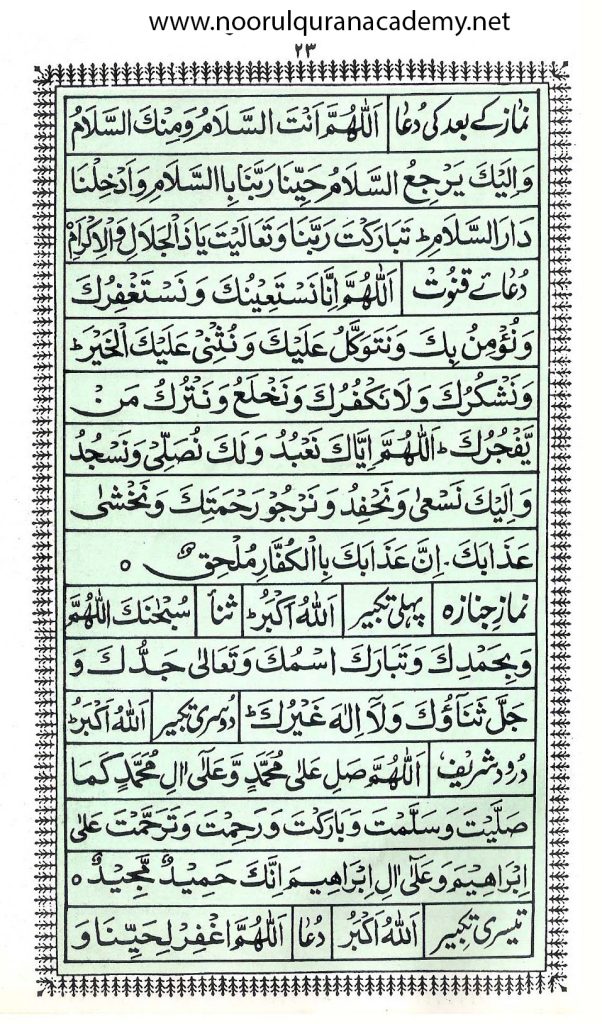 www.noorulquranacademy.net
۲۳
نماز کے بعد کی دُعا اَللّٰهُمَّ اَنْتَ السَّلَامُ وَمِنْكَ السَّلَامُ
وَاِلَيْكَ يَرْجِعُ السَّلَامُ حَيِّنَا رَبَّنَا بِاالسَّلَامِ وَاَدْخِلْنَا
دَارَالسَّلَامِ ؕ تَبَارَكْتَ رَبَّنَا وَتَعَالَيْتَ يَاذَالْجَلَالِ وَالْاِكْرَامْ
دُعائے قنوُت اَللّٰهُمَّ اِنَّا نَسْتَعِيْنُكَ وَنَسْتَغْفِرُكَ
وَنُؤْمِنُ بِكَ وَنَتَوَكَّلُ عَلَيْكَ وَنُثْنِىْ عَلَيْكَ الْخَيْرَ ؕ
وَنَشْكُرُكَ وَلَا نَكْفُرُكَ وَنَخْلَعُ وَنَتْرُكُ مَنْ
يَّفْجُرُكَ ؕ اَللّٰهُمَّ اِيَّاكَ نَعْبُدُ وَلَكَ نُصَلِّىْ وَنَسْجُدُ
وَاِلَيْكَ نَسْعٰى وَنَحْفِدُ وَنَرْجُوْ رَحْمَتِكَ وَنَخْشٰى
عَذَابَكَ ۔ اِنَّ عَذَابَكَ بِاالْكُفَّارِ مُلْحِقٌ ٥
نمازِ جنازہ پہلی تکبیر اَللّٰهُ اَكْبَرُ ؕ ثنأ سُبْحٰنَكَ اللّٰهُمَّ
وَبِحَمْدِكَ وَتَبَارَكَ اسْمُكَ وَتَعَالٰى جَدُّكَ وَ
جَلَّ ثَنَآؤُكَ وَلَآ اِلٰهَ غَيْرُكَ ؕ دُوسری تکبیر اَللّٰهُ اَكْبَرُ ؕ
درُود شریف اَللّٰهُمَّ صَلِ عَلٰى مُحَمَّدٍ وَّعَلٰٓى اٰلِ مُحَمَّدٍ كَمَا
صَلَّيْتَ وَسَلَّمْتَ وَبَارَكْتَ وَرَحِمْتَ وَتَرَحَّمْتَ عَلٰى
اِبْرَاهِيْمَ وَعَلٰٓى اٰلِ اِبْرَاهِيْمَ اِنَّكَ حَمِيْدٌ مَّجِيْدٌ ٥
تیسری تکبیر اَللّٰهُ اَكْبَرُ دُعا اَللّٰهُمَّ اغْفِرْ لِحَيِّنَا وَ